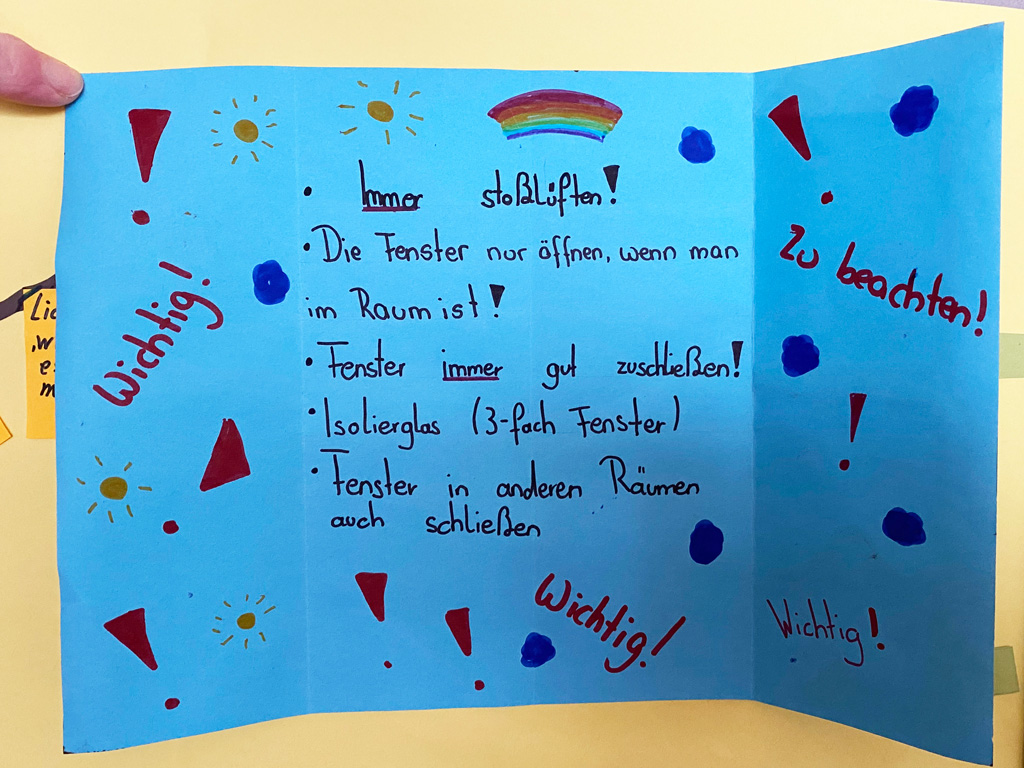 Wichtig!
• Immer stoßlüften!
• Die Fenster nur öffnen, wenn man
im Raum ist!
• Fenster immer gut zuschließen!
• Isolierglas (3-fach Fenster)
• Fenster in anderen Räumen
auch schließen
Wichtig!
Zu beachten!
Wichtig!